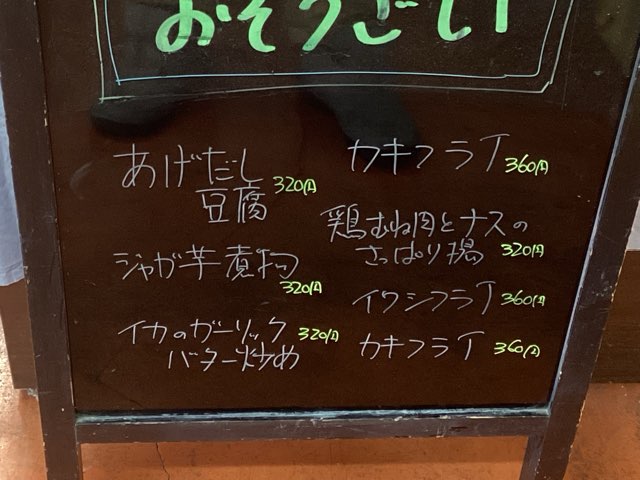 おそうざい
あげだし
豆腐 320円
ジャガ芋煮物
320円
イカのガーリック 320円
バター炒め
カキフライ 360円
鶏むね肉とナスの
さっぱり揚 320円
イワシフライ 360円
カキフライ 360円